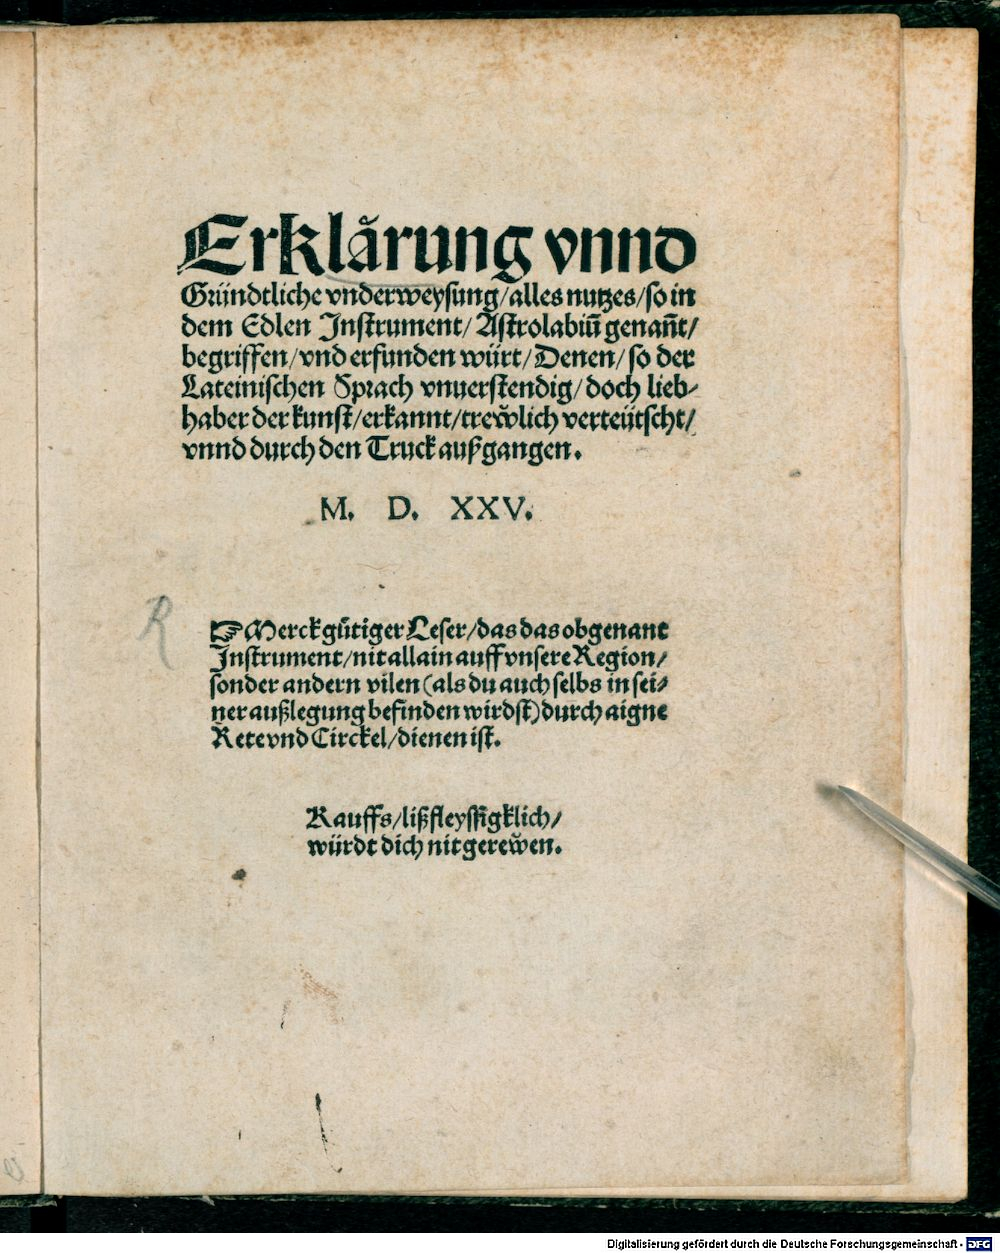 Erklårung vnnd
Gründtliche vnderweysung/alles nutzes/so in
dem Edlen Instrument/Astrolabiū genañt/
begriffen/vnd erfunden würt/Denen/so der
Lateinischen Sprach vnuerstendig/doch lieb-
haber der kunst/erkannt/trewlich verteütscht/
vnnd durch den Truck außgangen.
M. D. XXV.
R
☞Merck gütiger Leser/das das obgenant
Instrument/nit allain auff vnsere Region/
sonder andern vilen (als du auch selbs in sei-
ner außlegung befinden wirdst) durch aigne
Rete vnd Circkel/dienen ist.
Kauffs/liß fleyssigklich/
würdt dich nit gerewen.
Digitalisierung gefördert durch die Deutsche Forschungsgemeinschaft - DFG